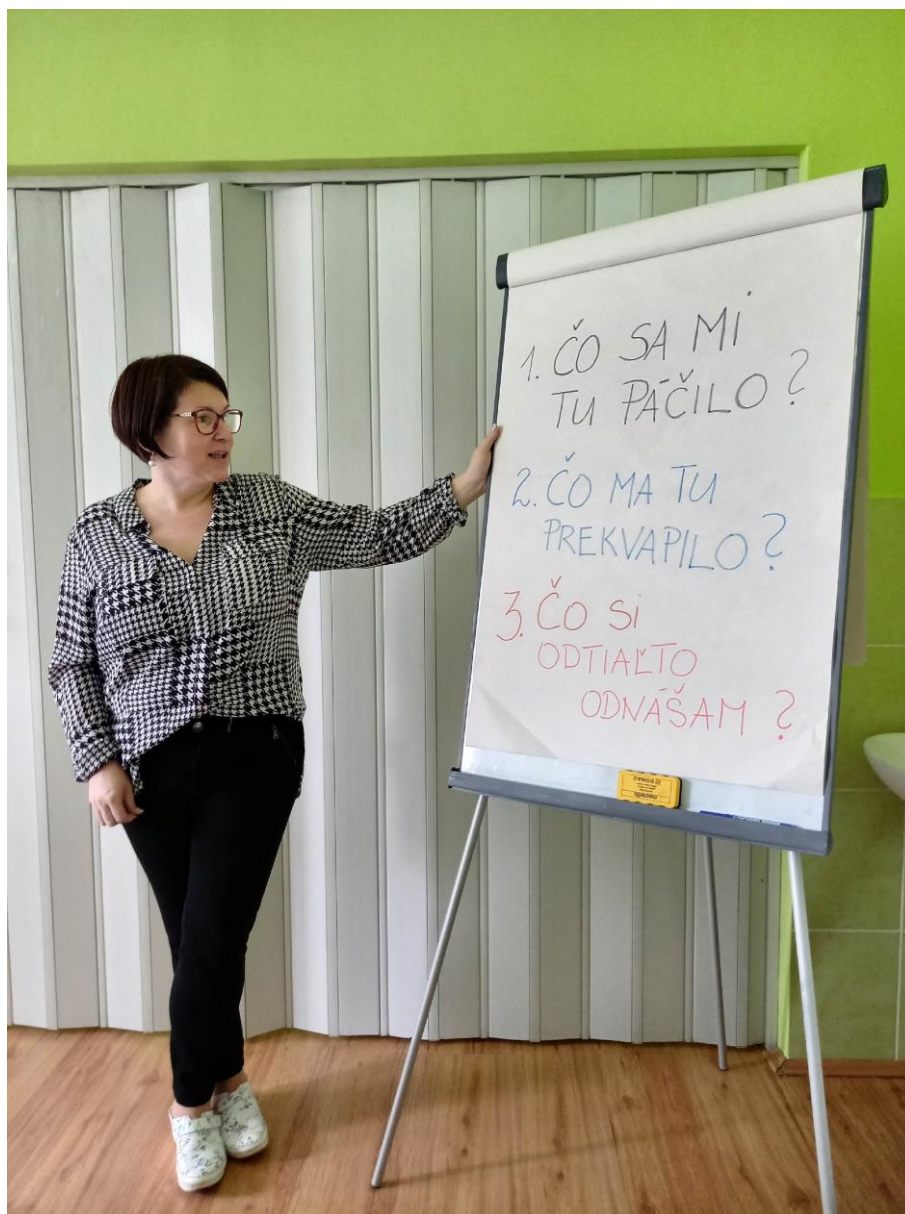 1. ČO SA MI
TU PÁČILO?
2. ČO MA TU
PREKVAPILO?
3. ČO SI
ODTIAĽTO
ODNÁŠAM?